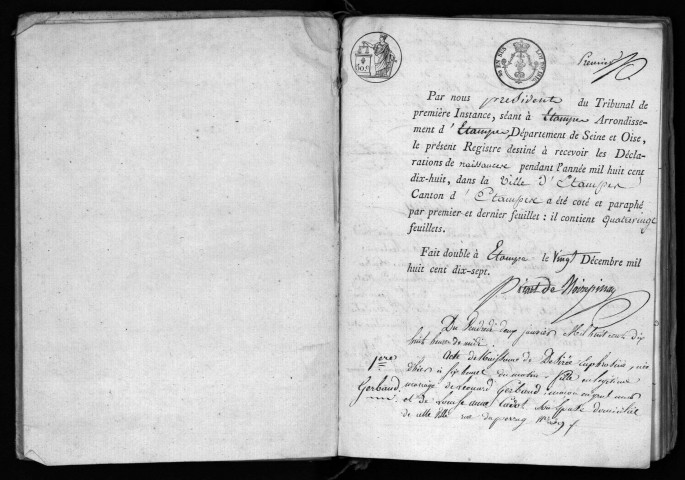 Premier
Par nous président du Tribunal de
première Instance, séant à Etampes Arrondisse-
ment d'Etampes, Département de Seine et Oise,
le présent Registre destiné à recevoir les Décla-
rations de naissances pendant l'année mil huit cent
dix-huit, dans la Ville d'Etampes
Canton d'Etampes a été coté et paraphé
par premier et dernier feuillet : il contient quatrevingt
feuillets.
Fait double à Etampes le Vingt Décembre mil
huit cent dix-sept.
Du Vendredi deux janvier Mil huit cent dix
huit heure de midi.
Acte de Naissance de Désirée née
d'hier à six heures du matin. fille en légitime
1ère
Gerbaud mariage de Léonard Gerbaud maçon
et de Louise son épouse domiciliés
de cette Ville rue